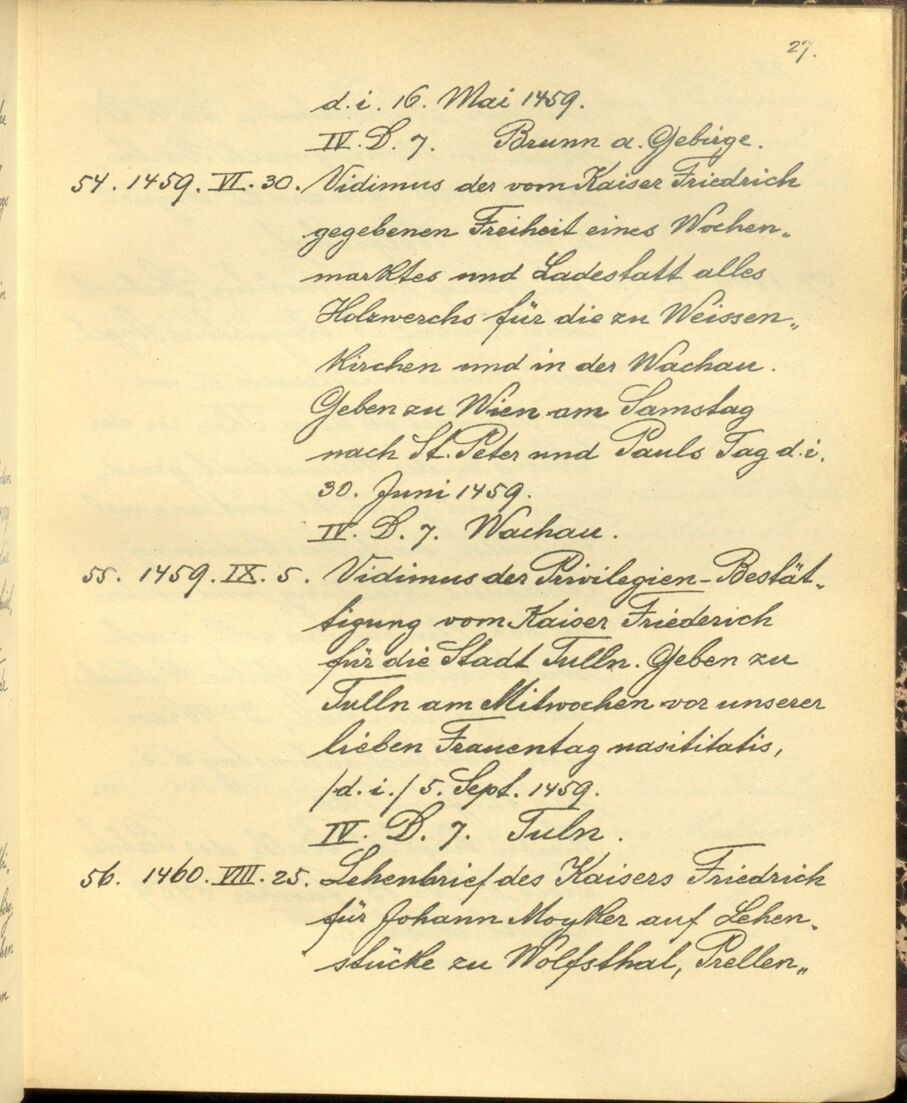 27.
d. i. 16. Mai 1459.
IV. D. 7. Brunn a. Gebirge.
54. 1459. VI. 30. Vidimus der vom Kaiser Friedrich
gegebenen Freiheit eines Wochen„
marktes und Ladestatt alles
Holzwerchs für die zu Weissen„
Kirchen und in der Wachau.
Geben zu Wien am Samstag
nach St. Peter und Pauls Tag d. i.
30. Juni 1459.
IV. D. 7. Wachau.
55. 1459. IX. 5. Vidimus der Privilegien-Bestät„
tigung vom Kaiser Friederich
für die Stadt Tulln. Geben zu
Tulln am Mitwochen vor unserer
lieben Frauentag nasititatis,
/d. i./ 5. Sept. 1459.
IV. D. 7. Tuln.
56. 1460. VIII. 25. Lehenbrief des Kaisers Friedrich
für Johann Moyker auf Lehen„
stücke zu Wolfsthal, Prellen„